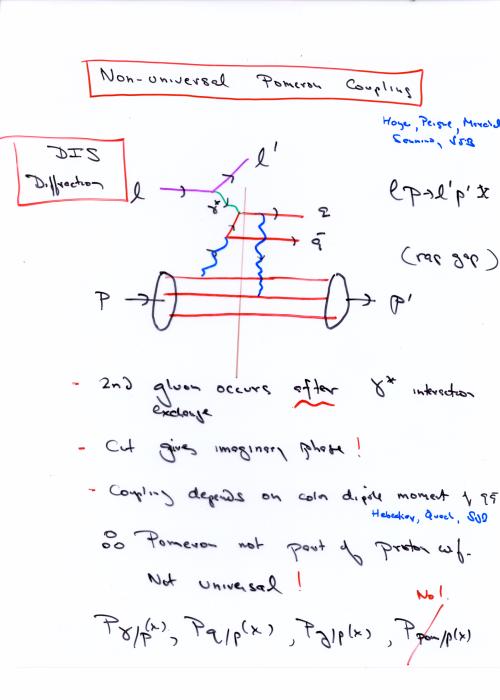 Non-universal Pomeron Coupling
Hoyer, Peigne, Marchal
Sannino, SJB
DIS
Diffraction
l
l'
γ*
q
q̄
l p → l' p' X
(rap gap)
P
P'
- 2nd gluon occurs after γ* interaction
exchange
- Cut gives imaginary phase!
- Coupling depends on color dipole moment of qq̄
Hebecker, Quack, SJB
∴ Pomeron not part of proton wf.
Not universal!
No!
P γ/p (x), P q/p (x), P g/p (x), P pom/p (x)